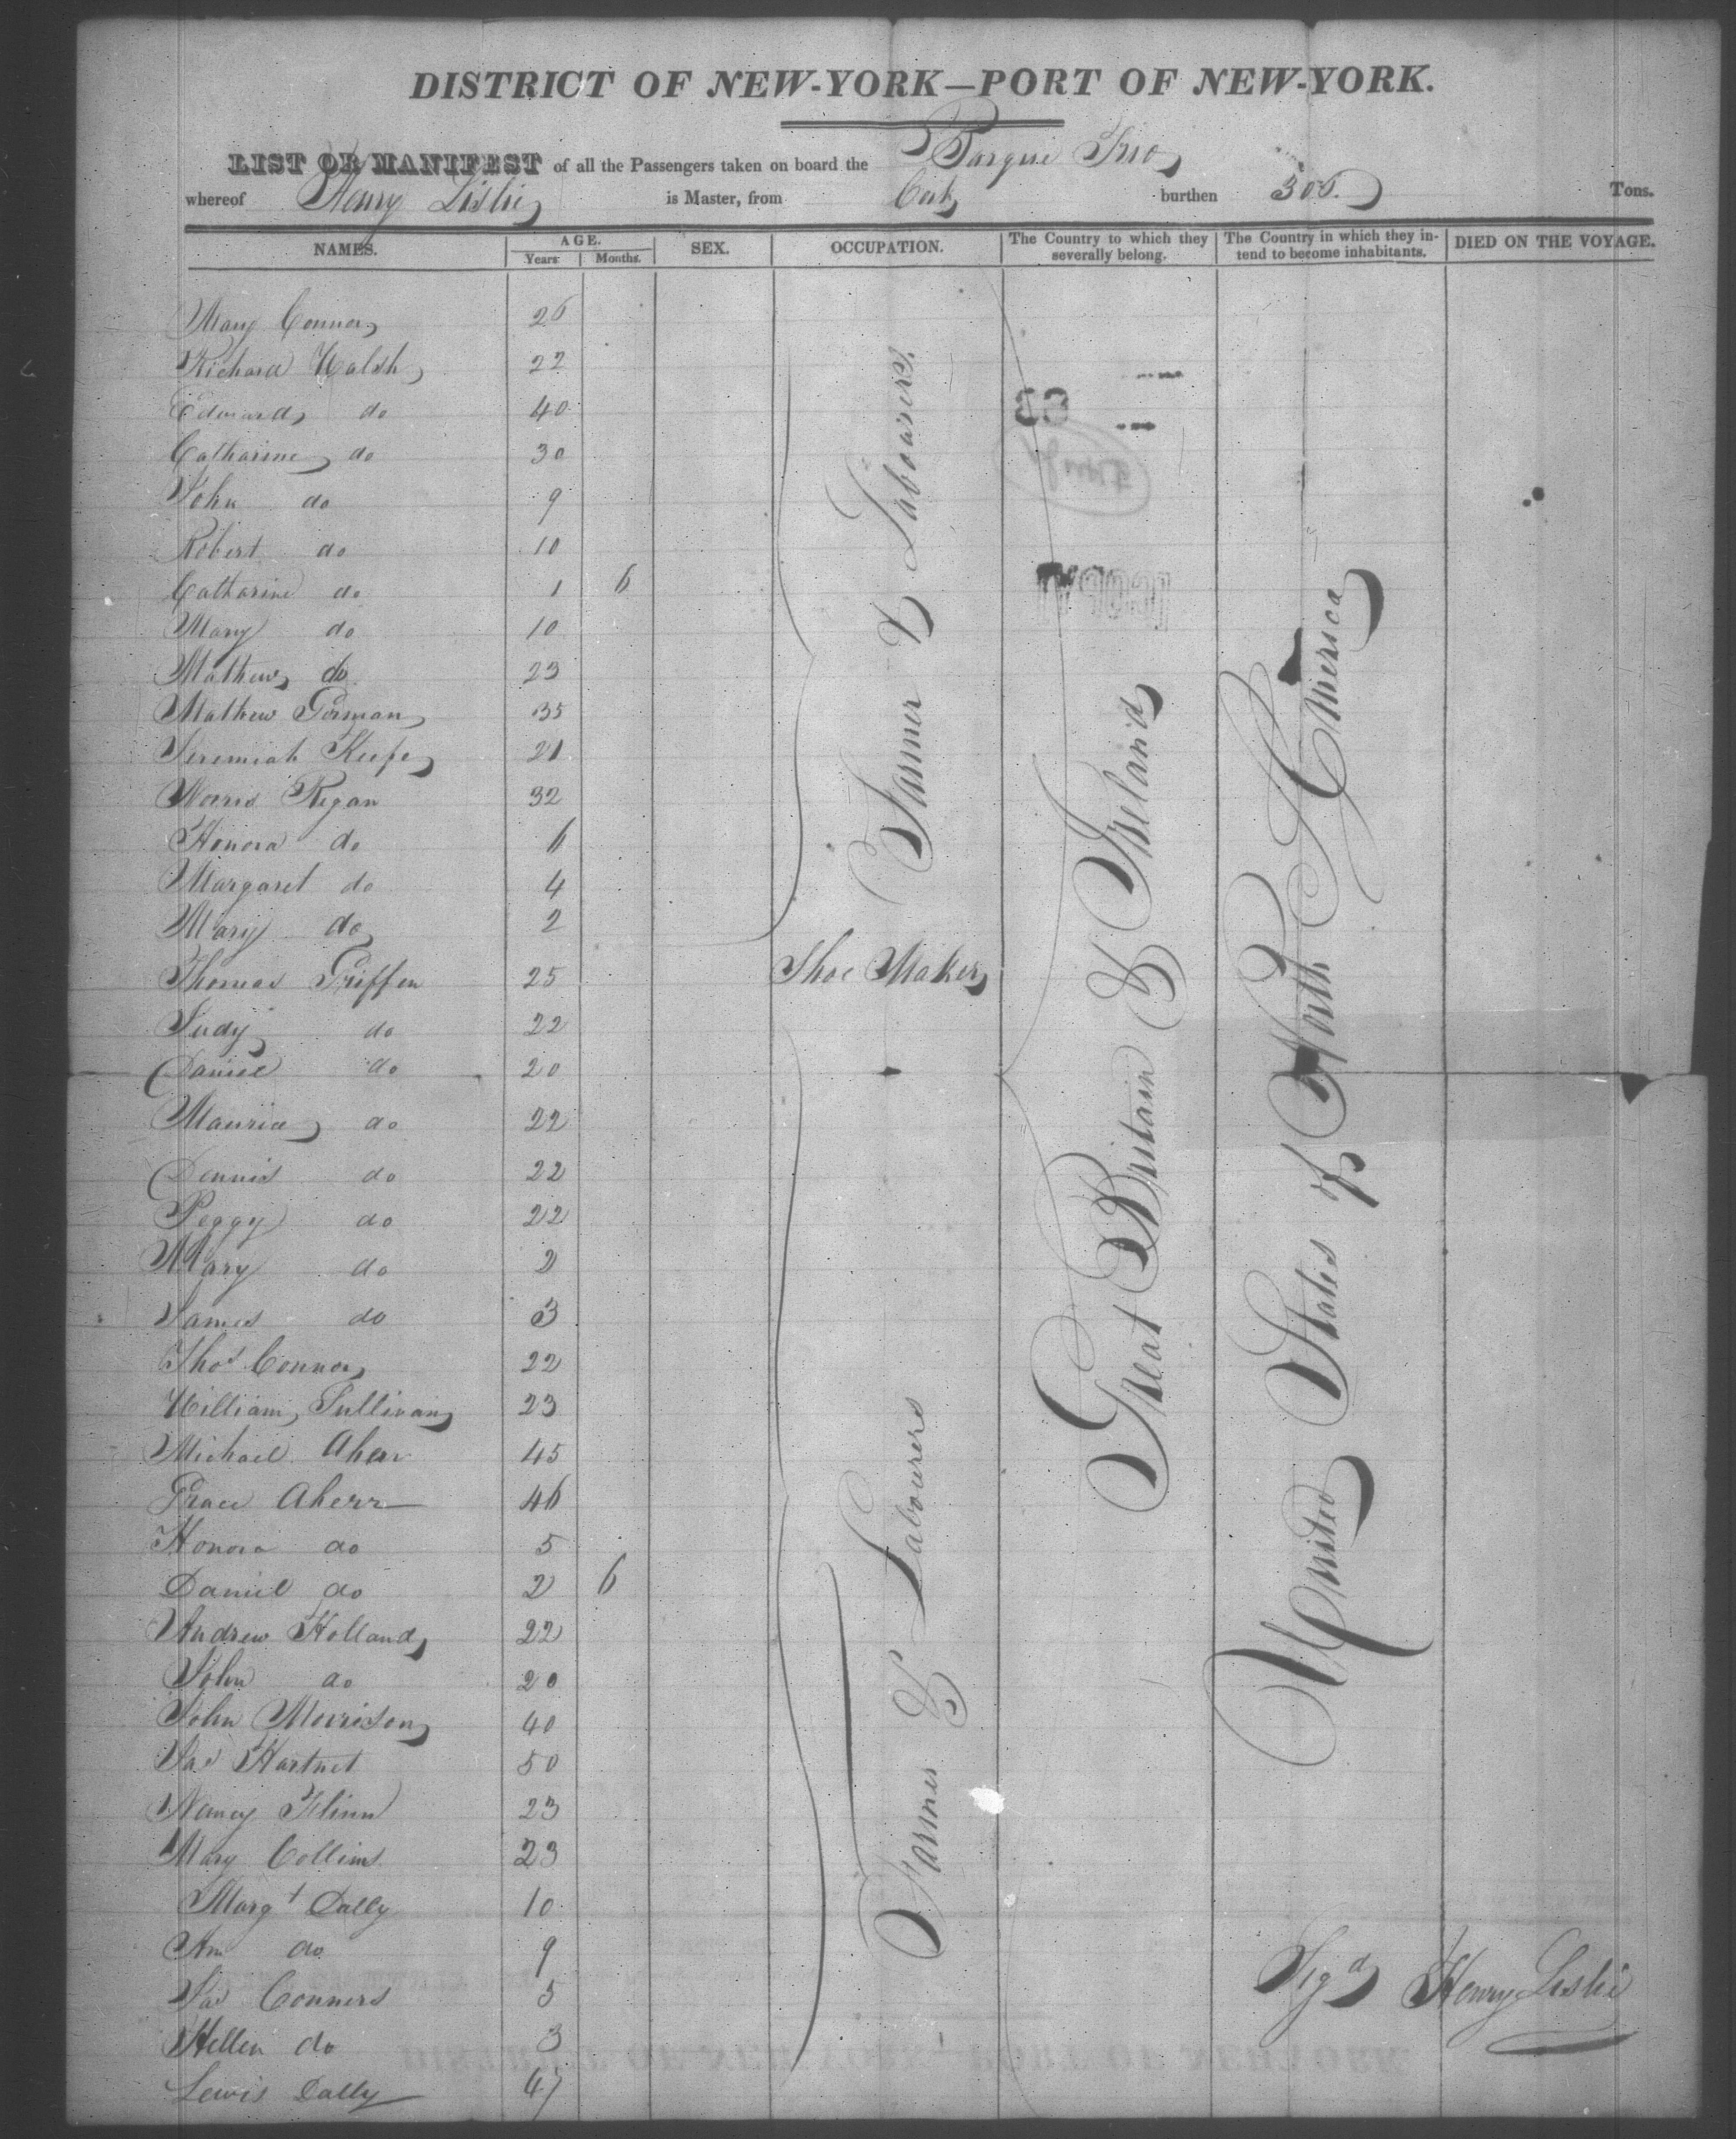 DISTRICT OF NEW-YORK—PORT OF NEW-YORK.
LIST OR MANIFEST of all the Passengers taken on board the Barque Trio
whereof Henry Leslie is Master, from Cork burthen 306. Tons.
NAMES. AGE. Years. Months. SEX. OCCUPATION. The Country to which they severally belong. The Country in which they intend to become inhabitants. DIED ON THE VOYAGE.
Mary Connor 26
Richard Walsh 22
Edward do 40
Catharine do 30
John do 9
Robert do 10
Catharine do 1 6
Mary do 10
Mathew do 23
Mathew German 35
Jeremiah Keefe 21
Norris Regan 32
Honora do 6
Margaret do 4
Mary do 2
Farmer & Labourers
Thomas Griffen 25 Shoe Maker
Judy do 22
Daniel do 20
Maurice do 22
Dennis do 22
Peggy do 22
Mary do 2
James do 3
Thos Connor 22
William Sullivan 23
Michael Ahern 45
Grace Ahern 46
Honora do 5
Daniel do 2 6
Andrew Holland 22
John do 20
John Morrison 40
Jas Hartnet 50
Nancy Flinn 23
Mary Collins 23
Margt Dally 10
An do 9
Jas Conners 5
Hellen do 3
Lewis Dally 47
Farmer & Labourers
Great Britain & Ireland
United States of North America
Sigd Henry Leslie